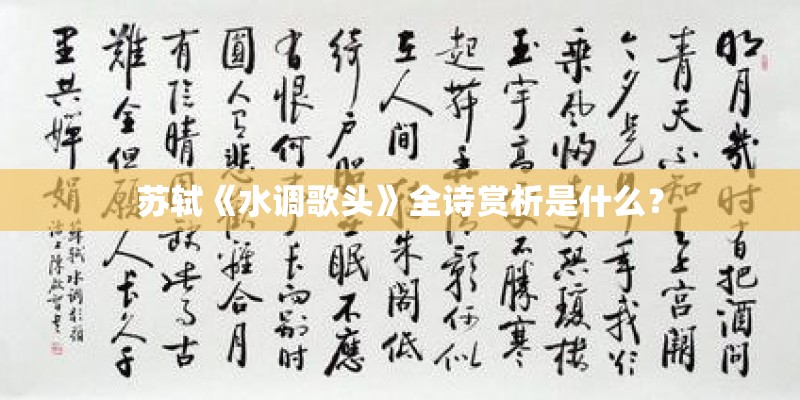 苏轼《水调歌头》全诗赏析是什么？
明月幾时有把酒问
青天不知天上宫闕
今夕是年我欲
乘风归又恐瓊楼
玉宇高不勝寒
起舞弄影何似
在人间朱阁低
绮户照眠不應
有恨何长向别时
圓人有悲歡離合月
有陰晴圆缺此事古
難全但願人长久千
里共嬋娟
蘇軾水调歌頭